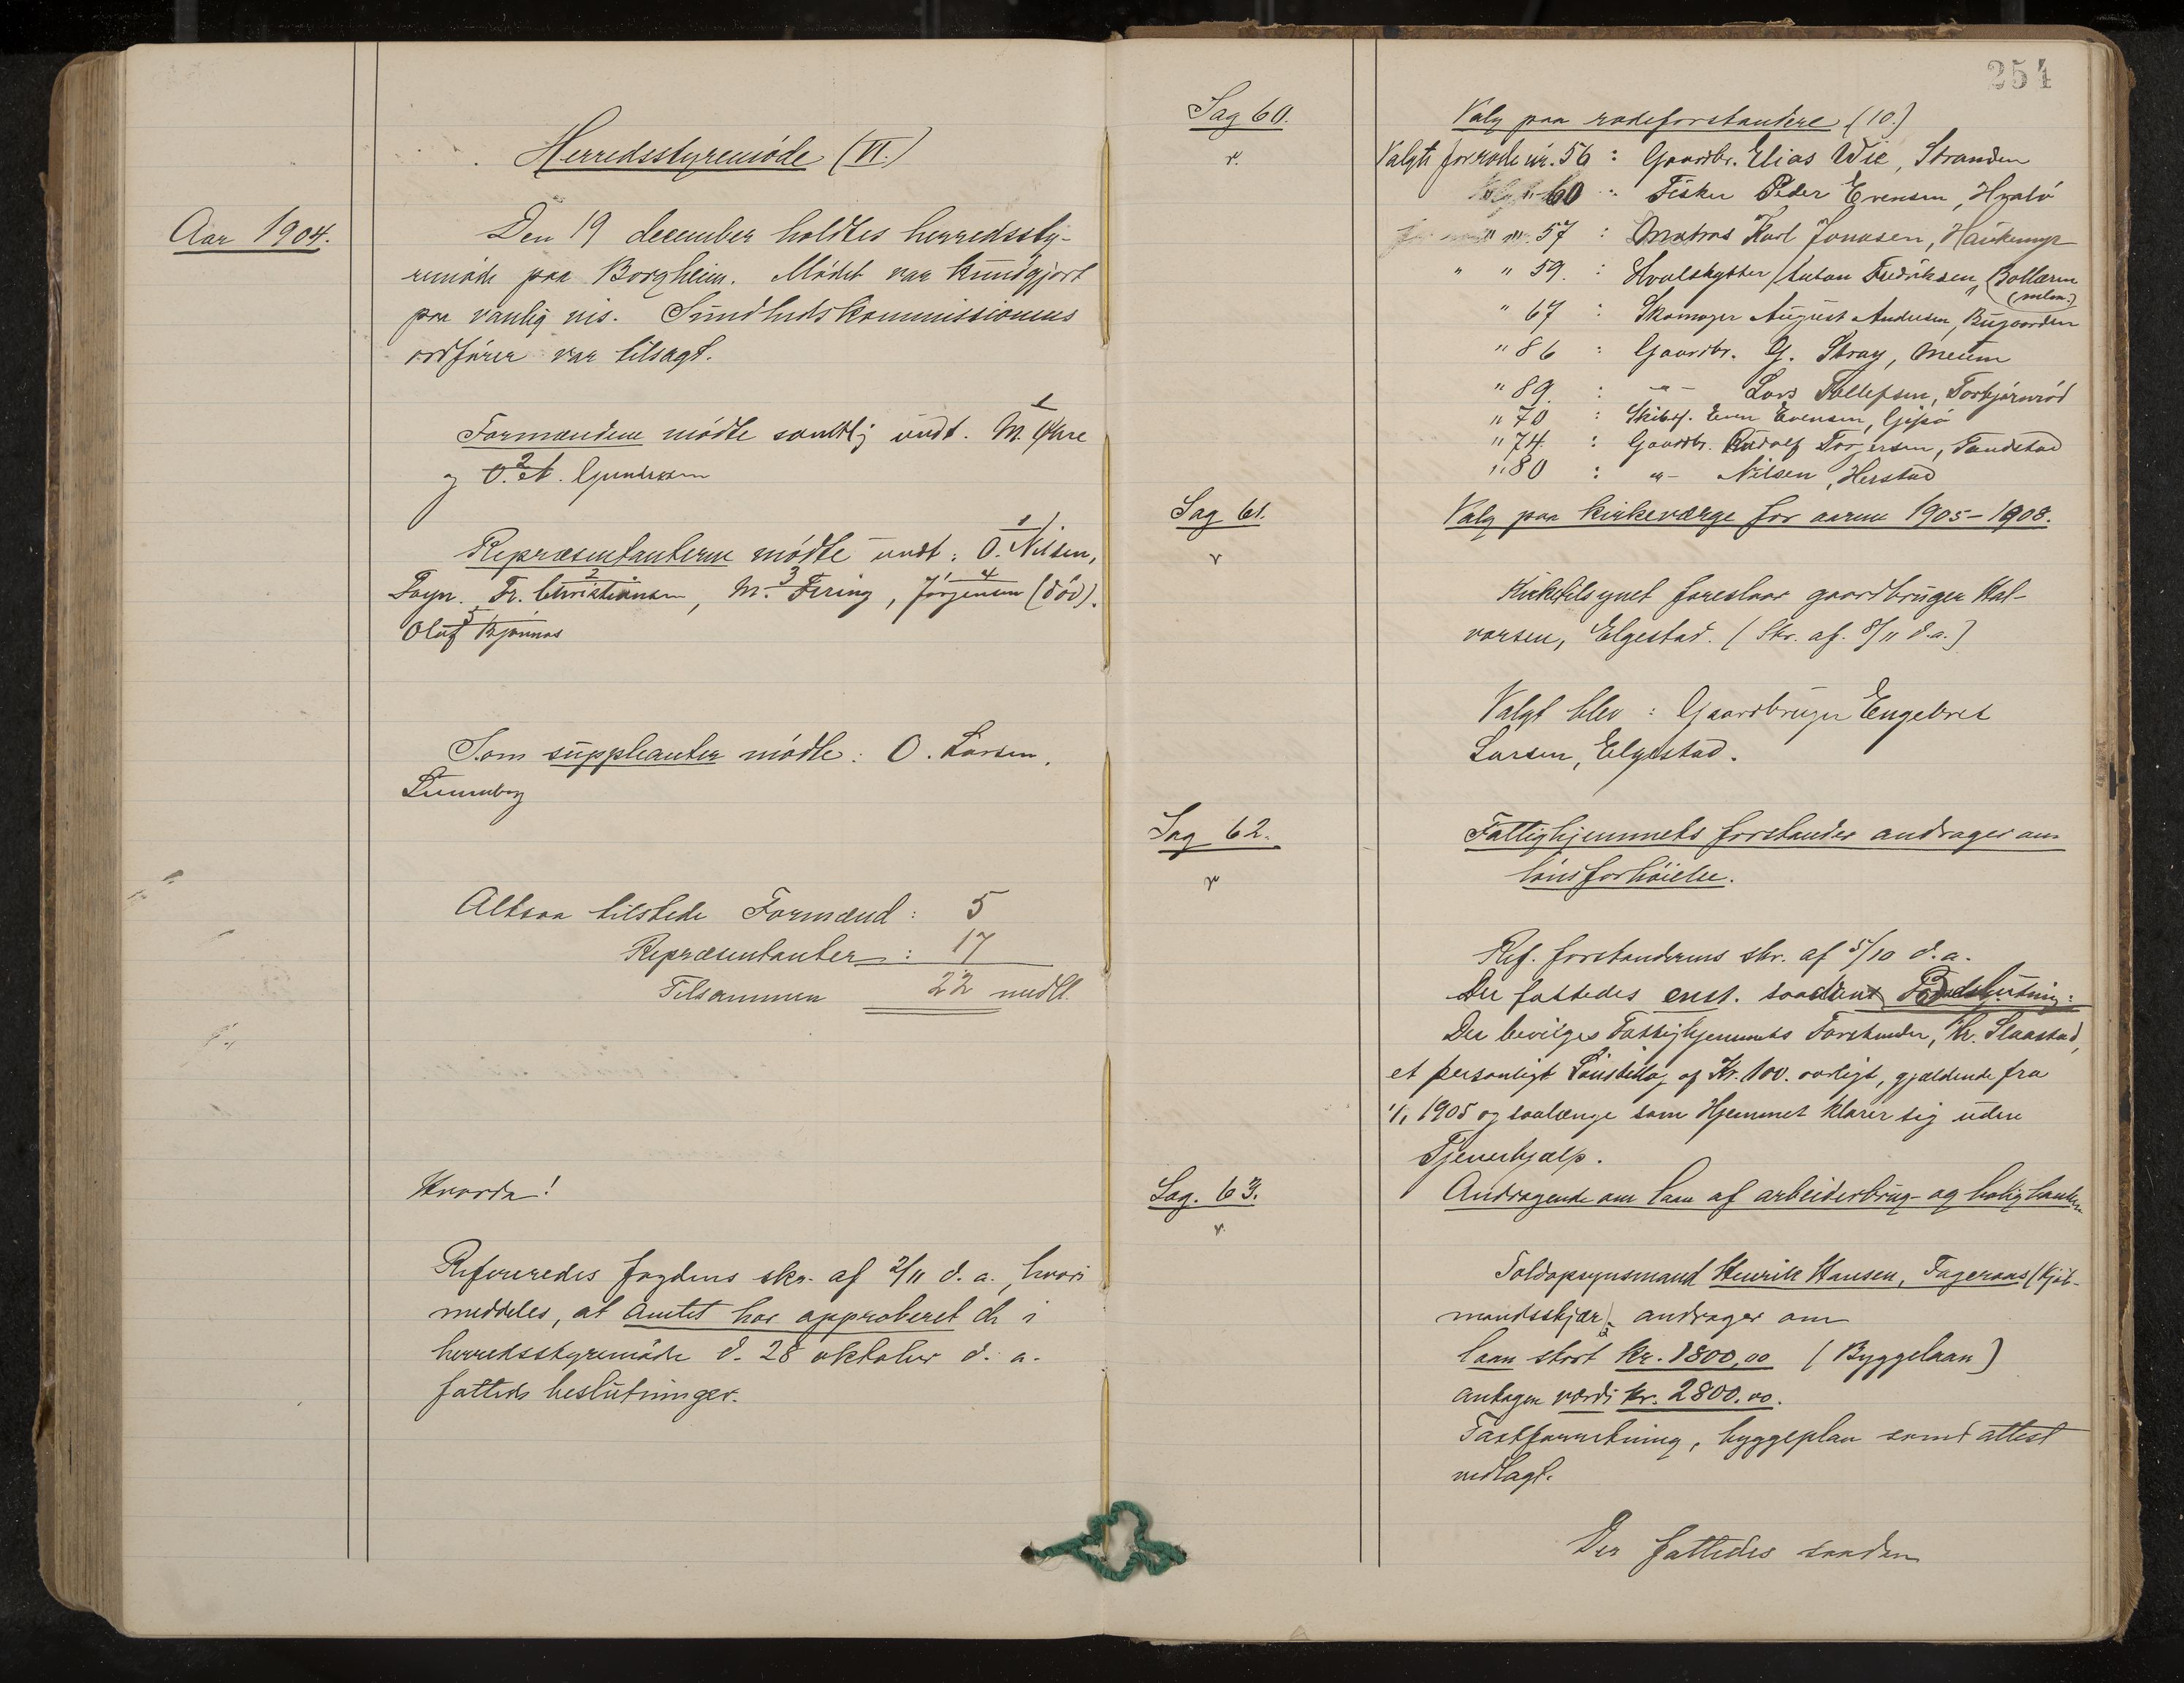 Herredsstyremøde (VI.)
Aar 1904.
Den 19 december holdtes herredssty-
remøde paa Borgheim. Mødet var kundgjort
paa vanlig vis. Sundhedskommissionens
ordfører var tilsagt.
Formændene mødte samtlig undt. M.
og O. A. Gundersen
Repræsentanterne mødte undt: O. Nilsen,
Fr. Christiansen, M. Firing, Jørgensen (død).
Oluf Bjønnes
Som suppleanter mødte: O. Larsen,
Altsaa tilstede Formænd: 5
Repræsentanter: 17
Tilsammen 22 medl.
Hvorda!
Refereredes fogdens skr. af 2/11 d. a., hvori
meddeles, at amtet har approberet de i
herredsstyremøde d. 28 oktober d. a.
fattede beslutninger.
254
Sag 60.
Valg paa rodeforstandere (10.)
Valgt for rode nr. 56: Gaardbr. Elias Wie, Stranden
" " 60: Fisker Peder Evensen, Hvalø
" nr. 57: Matros Karl Jonasen, Haukemyr
" " 59.: Hvalskytter Anton Fredriksen, Bollærne
(mlm.)
" 67: Skomager August Andersen, Bugaarden
" 86: Gaardbr. G. Stray, Meum
" 89: -"- Lars Tollefsen, Torbjørnrød
" 70: Skibsf. Even Evensen, Gipø
" 74: Gaardbr. Rudolf Torjersen, Tandstad
" 80: -"- Nilsen, Herstad
Sag 61.
Valg paa kirkeværge for aarene 1905-1908.
Kirketilsynet foreslaar gaardbruger Hal-
vorsen, Elgestad. (Skr. af 8/11 d.a.)
Valgt blev: Gaardbruger Engebret
Larsen, Elgestad.
Sag 62.
Fattighjemmets forstander andrager om
lønsforhøielse.
Ref. forstanderens skr. af 5/10 d.a.
Der fattedes enst. saadan Beslutning:
Der bevilges Fattighjemmets Forstander, Hr. Slaastad,
et personligt Lønstillæg af Kr. 100. aarligt, gjældende fra
1/1 1905 og saalænge som Hjemmet klarer sig uden
Tjenerhjælp.
Sag. 63.
Andragende om laan af arbeiderbrug- og boligbanken
Toldopsynsmand Henrik Hansen, Fageraas (Kjøb-
mandsskjær) andrager om
laan stort kr. 1800,00 (Byggelaan)
antagen værdi kr. 2800.00.
Taxtforretning, byggeplan samt attest
vedlagt.
Der fattedes saadan